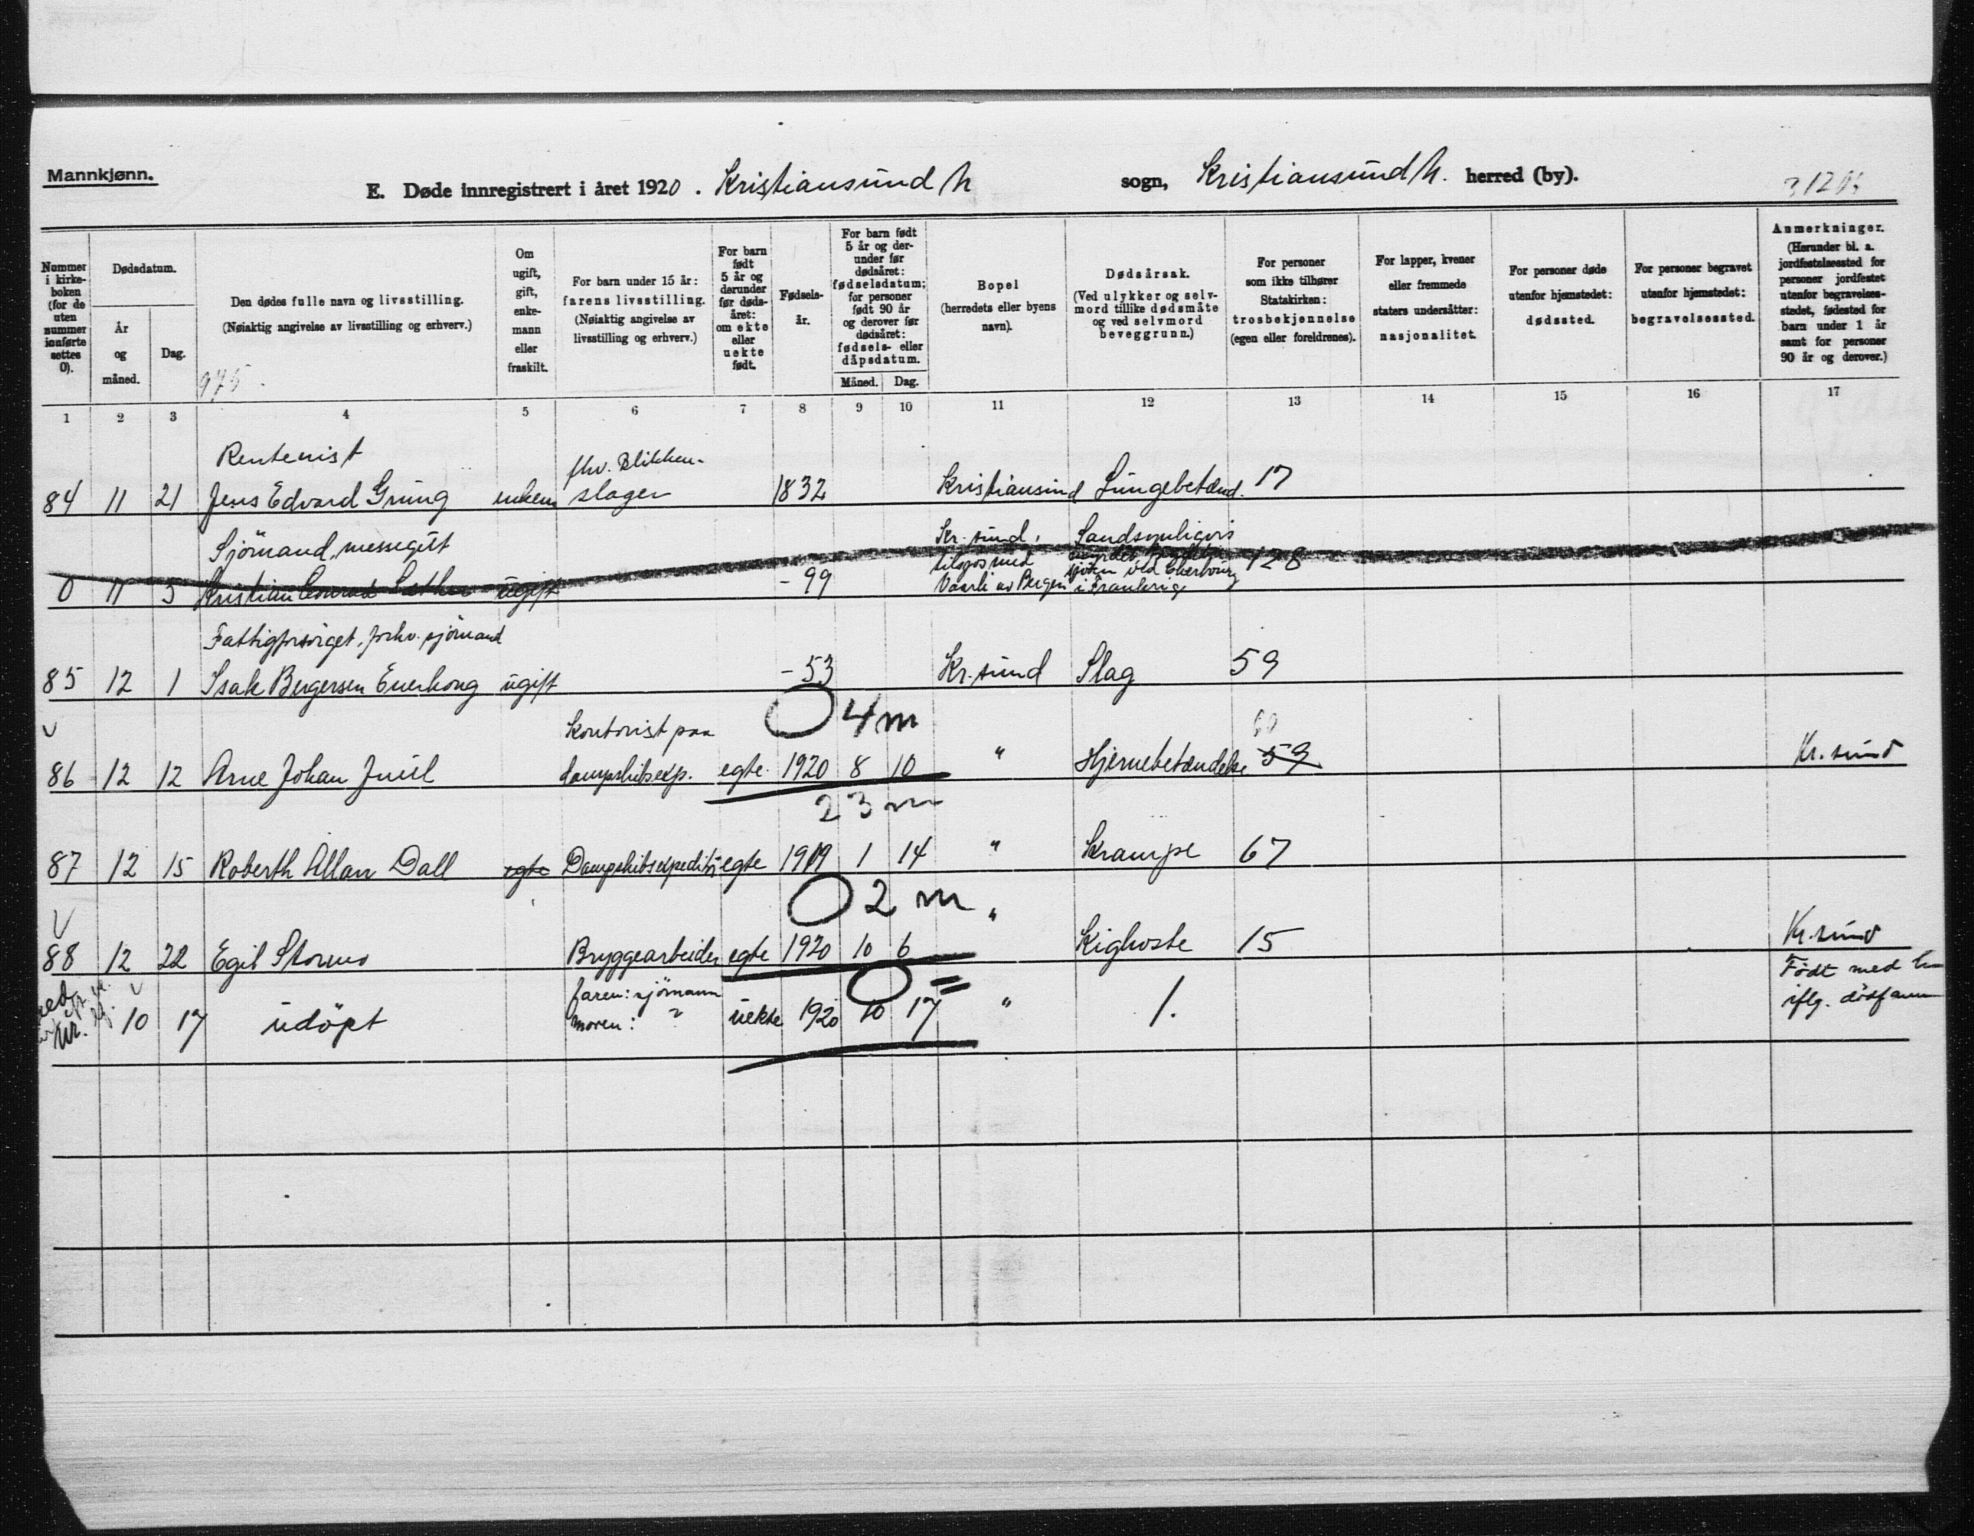 Mannkjønn.
E. Døde innregistrert i året 1920. Kristiansund N sogn, Kristiansund N. herred (by).
Nummer i kirkeboken (for de uten nummer innførte settes 0).
Dødsdatum.
År og måned.
Dag.
Den dødes fulle navn og livsstilling.
(Nøiaktig angivelse av livsstilling og erhverv.)
975
Om ugift, gift, enkemann eller fraskilt.
For barn under 15 år: farens livsstilling.
(Nøiaktig angivelse av livsstilling og erhverv.)
For barn født 5 år og derunder før dødsåret: om ekte eller uekte født.
Fødselsår.
For barn født 5 år og derunder før dødsåret: fødselsdatum; for personer født 90 år og derover før dødsåret: fødsels- eller dåpsdatum.
Måned. Dag.
Bopel
(herredets eller byens navn).
Dødsårsak.
(Ved ulykker og selvmord tillike dødsmåte og ved selvmord beveggrunn.)
For personer som ikke tilhører Statskirken: trosbekjennelse (egen eller foreldrenes).
For lapper, kvener eller fremmede staters undersåtter: nasjonalitet.
For personer døde utenfor hjemstedet: dødssted.
For personer begravet utenfor hjemstedet: begravelsessted.
Anmerkninger.
(Herunder bl. a. jordfestelsessted for personer jordfestet utenfor begravelsesstedet, fødested for barn under 1 år samt for personer 90 år og derover.)
1 2 3 4 5 6 7 8 9 10 11 12 13 14 15 16 17
Rentenist fhv. Blikken-
84 11 21 Jens Edvard Grung enkem slager 1832 Kristiansund Lungebetænd. 17
Sjömand, messegut Kr.sund, Sandsynligvis
tilgos med
sjöen ved Cherbourg 128
0 11 5 Kristian Conrad Sæther ugift -99 Vaarli av Bergen i Frankrig
Fattigforsörget, forhv. sjömand
85 12 1 Isak Bergersen Enerhoug ugift -53 Kr.sund Slag 59
4 m
Kontorist paa 60
86 12 12 Arne Johan Juul dampskibsexp. egte 1920 8 10 " Hjernebetændelse 59 Kr.sund
23 m
87 12 15 Roberth Allan Dall egte Dampskibsexpeditör egte 1919 1 14 " Krampe 67
2 m
88 12 22 Egil Stormo Bryggearbeider egte 1920 10 6 " Kighoste 15 Kr.sund
faren: sjömann Født med
10 17 udöpt moren: ? uekte 1920 10 17 " 1. iflg. dødsanm